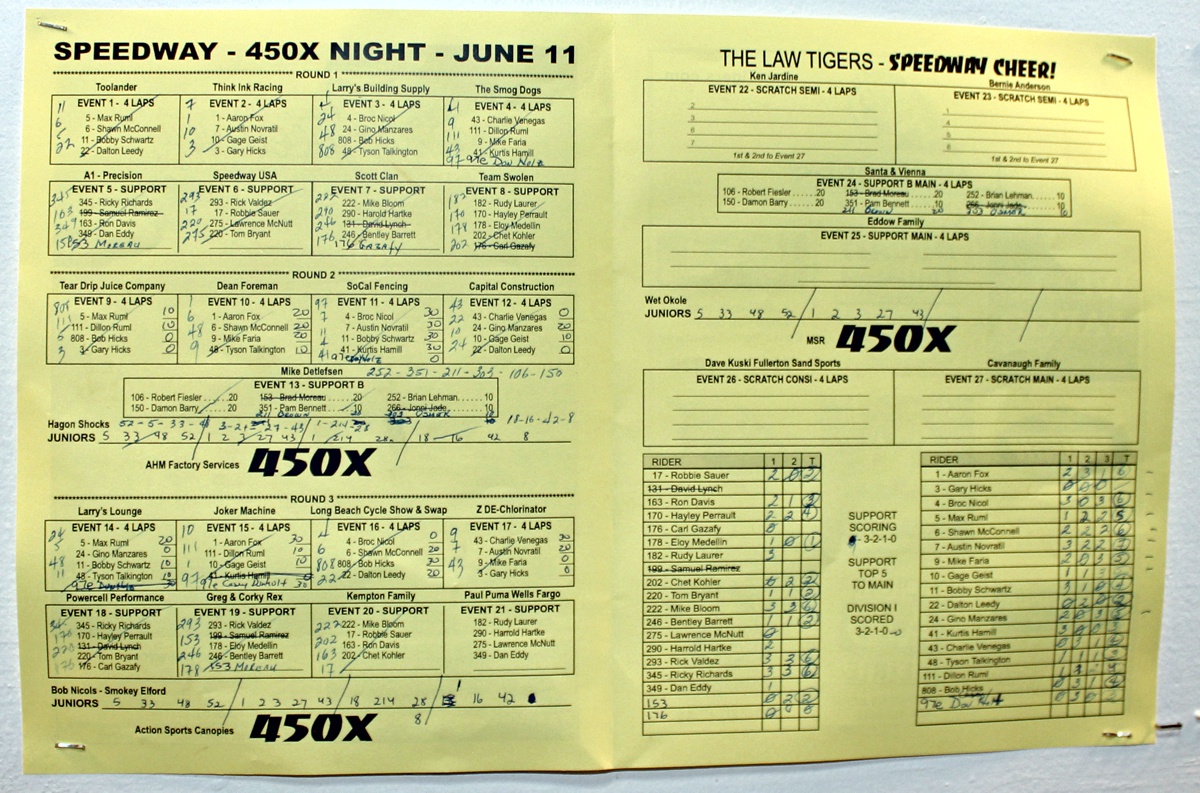 SPEEDWAY - 450X NIGHT - JUNE 11
ROUND 1
Toolander
EVENT 1 - 4 LAPS
11 5 - Max Ruml
6 6 - Shawn McConnell
5 11 - Bobby Schwartz
22 22 - Dalton Leedy
Think Ink Racing
EVENT 2 - 4 LAPS
7
1 1 - Aaron Fox
10 7 - Austin Novratil
3 10 - Gage Geist
3 - Gary Hicks
Larry's Building Supply
EVENT 3 - 4 LAPS
4
24 4 - Broc Nicol
48 24 - Gino Manzares
808 808 - Bob Hicks
48 - Tyson Talkington
The Smog Dogs
EVENT 4 - 4 LAPS
9 43 - Charlie Venegas
111 111 - Dillon Ruml
43 9 - Mike Faria
41 - Kurtis Hamill
97 97e
A1 - Precision
EVENT 5 - SUPPORT
345 345 - Ricky Richards
163 199 - Samuel Ramirez
349 163 - Ron Davis
349 - Dan Eddy
153 MOREAU
Speedway USA
EVENT 6 - SUPPORT
293 293 - Rick Valdez
17 17 - Robbie Sauer
220 275 - Lawrence McNutt
275 220 - Tom Bryant
Scott Clan
EVENT 7 - SUPPORT
222 222 - Mike Bloom
290 290 - Harold Hartke
246 131 - David Lynch
176 246 - Bentley Barrett
176 GAZAFY
Team Swolen
EVENT 8 - SUPPORT
182 182 - Rudy Laurer
170 170 - Hayley Perrault
178 178 - Eloy Medellin
202 202 - Chet Kohler
176 - Carl Gazafy
ROUND 2
Tear Drip Juice Company
EVENT 9 - 4 LAPS
808 5 - Max Ruml 10
111 111 - Dillon Ruml 10
5 808 - Bob Hicks 0
3 3 - Gary Hicks 0
Dean Foreman
EVENT 10 - 4 LAPS
1 1 - Aaron Fox 20
6 6 - Shawn McConnell 20
48 9 - Mike Faria 20
9 48 - Tyson Talkington 10
SoCal Fencing
EVENT 11 - 4 LAPS
97 4 - Broc Nicol 30
7 7 - Austin Novratil 30
4 11 - Bobby Schwartz 30
41 - Kurtis Hamill 30
0
Capital Construction
EVENT 12 - 4 LAPS
43 43 - Charlie Venegas 0
22 24 - Gino Manzares 20
10 10 - Gage Geist 10
24 22 - Dalton Leedy 0
Mike Detlefsen 252 - 351 - 211 - 303 - 106 - 150
EVENT 13 - SUPPORT B
106 - Robert Fiesler .....20 153 - Brad Moreau .......20 252 - Brian Lehman.......10
150 - Damon Barry .......20 351 - Pam Bennett .......10 266 - Jonni Jade .........10
211 BROWN 303 OSHER
Hagon Shocks 52 - 5 - 33 - 48 3 - 2 - 1 - 27 - 43 1 - 214 - 28 18-16-42-8
JUNIORS 5 33 48 52 / 1 2 3 27 43 / 1 214 28 / 18 16 42 8
AHM Factory Services 450X
ROUND 3
Larry's Lounge
EVENT 14 - 4 LAPS
5 5 - Max Ruml 20
24 - Gino Manzares 0
48 11 - Bobby Schwartz 10
11 48 - Tyson Talkington 10
Joker Machine
EVENT 15 - 4 LAPS
10 1 - Aaron Fox 30
111 111 - Dillon Ruml 10
1 10 - Gage Geist 10
97 41 - Kurtis Hamill 30
Long Beach Cycle Show & Swap
EVENT 16 - 4 LAPS
4 4 - Broc Nicol 0
6 6 - Shawn McConnell 20
808 808 - Bob Hicks 20
22 22 - Dalton Leedy 20
Z DE-Chlorinator
EVENT 17 - 4 LAPS
9 43 - Charlie Venegas 30
7 7 - Austin Novratil 20
43 9 - Mike Faria 0
3 - Gary Hicks 0
Powercell Performance
EVENT 18 - SUPPORT
345 - Ricky Richards
170 170 - Hayley Perrault
220 131 - David Lynch
220 - Tom Bryant
176 176 - Carl Gazafy
Greg & Corky Rex
EVENT 19 - SUPPORT
293 293 - Rick Valdez
153 199 - Samuel Ramirez
246 178 - Eloy Medellin
178 246 - Bentley Barrett
153 MOREAU
Kempton Family
EVENT 20 - SUPPORT
222 222 - Mike Bloom
202 17 - Robbie Sauer
163 163 - Ron Davis
17 202 - Chet Kohler
Paul Puma Wells Fargo
EVENT 21 - SUPPORT
182 - Rudy Laurer
290 - Harrold Hartke
275 - Lawrence McNutt
349 - Dan Eddy
Bob Nicols - Smokey Elford
JUNIORS 5 33 48 52 / 1 2 3 27 43 / 18 214 28 / 16 42
8
Action Sports Canopies 450X
THE LAW TIGERS - SPEEDWAY CHEER!
Ken Jardine
EVENT 22 - SCRATCH SEMI - 4 LAPS
2
3
6
7
1st & 2nd to Event 27
Bernie Anderson
EVENT 23 - SCRATCH SEMI - 4 LAPS
1
4
5
8
1st & 2nd to Event 27
Santa & Vienna
EVENT 24 - SUPPORT B MAIN - 4 LAPS
106 - Robert Fiesler .......20 153 - Brad Moreau .......20 252 - Brian Lehman.......10
150 - Damon Barry .......20 351 - Pam Bennett .......10 266 - Jonni Jade .........10
211 BROWN 20 303 OSHER 10
Eddow Family
EVENT 25 - SUPPORT MAIN - 4 LAPS
Wet Okole
JUNIORS 5 33 48 52 / 1 2 3 27 43 /
MSR 450X
Dave Kuski Fullerton Sand Sports
EVENT 26 - SCRATCH CONSI - 4 LAPS
Cavanaugh Family
EVENT 27 - SCRATCH MAIN - 4 LAPS
RIDER 1 2 T
17 - Robbie Sauer 2 0 2
131 - David Lynch
163 - Ron Davis 2 1 3
170 - Hayley Perrault 2 2 4
176 - Carl Gazafy 0
178 - Eloy Medellin 1 0 1
182 - Rudy Laurer 3
199 - Samuel Ramirez
202 - Chet Kohler 0 2 2
220 - Tom Bryant 1 1 2
222 - Mike Bloom 3 3 6
246 - Bentley Barrett 1 1 2
275 - Lawrence McNutt 0
290 - Harrold Hartke 2
293 - Rick Valdez 3 3 6
345 - Ricky Richards 3 3 6
349 - Dan Eddy 1
153 0 2 2
176 0
SUPPORT
SCORING
3-2-1-0
SUPPORT
TOP 5
TO MAIN
DIVISION I
SCORED
3-2-1-0
RIDER 1 2 3 T
1 - Aaron Fox 2 3 1 6
3 - Gary Hicks 0 0 0
4 - Broc Nicol 3 0 3 6
5 - Max Ruml 1 2 2 5
6 - Shawn McConnell 2 2 2 6
7 - Austin Novratil 3 2 2 7
9 - Mike Faria 2 0 3 5
10 - Gage Geist 1 1 3 5
11 - Bobby Schwartz 3 1 0
22 - Dalton Leedy 0 2 0 2
24 - Gino Manzares 2 0 3 5
41 - Kurtis Hamill
43 - Charlie Venegas
48 - Tyson Talkington
111 - Dillon Ruml
808 - Bob Hicks 0 3 1 4
97e